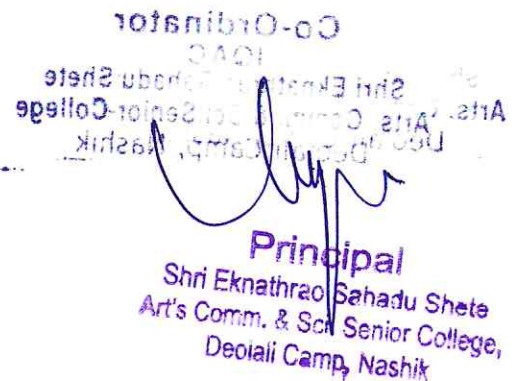 Co-Ordinator
IQAC
Shri Eknathrao Sahadu Shete
Arts, Comm. & Sci Senior College
Deolali Camp, Nashik
Principal
Shri Eknathrao Sahadu Shete
Art's Comm. & Sci Senior College,
Deolali Camp, Nashik